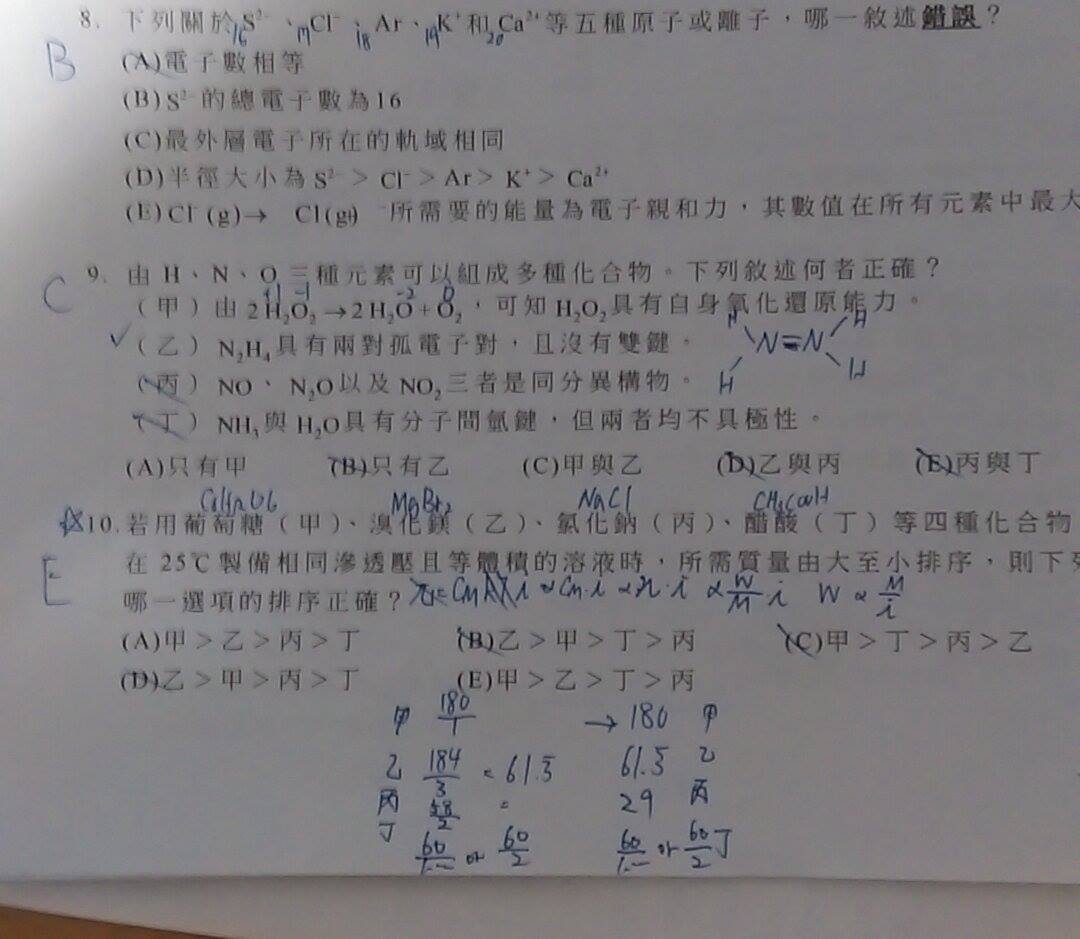 8. 下列關於 S²⁻、Cl⁻、Ar、K⁺和 Ca²⁺等五種原子或離子，哪一敘述錯誤？
16 17 18 19 20
B
(A)電子數相等
(B) S²⁻的總電子數為16
(C)最外層電子所在的軌域相同
(D)半徑大小為 S²⁻ > Cl⁻ > Ar > K⁺ > Ca²⁺
(E) Cl⁻(g)→ Cl(g)+ ⁻所需要的能量為電子親和力，其數值在所有元素中最大
C
9. 由 H、N、O 三種元素可以組成多種化合物。下列敘述何者正確？
+1 -1 -2 0
（甲）由 2H₂O₂→2H₂O+O₂，可知H₂O₂具有自身氧化還原能力。
✓（乙）N₂H₄具有兩對孤電子對，且沒有雙鍵。
H H N=N H H
（丙）NO、N₂O以及NO₂三者是同分異構物。
（丁）NH₃與H₂O具有分子間氫鍵，但兩者均不具極性。
(A)只有甲 (B)只有乙 (C)甲與乙 (D)乙與丙 (E)丙與丁
C6H12O6 MgBr₂ NaCl CH3COOH
10.若用葡萄糖（甲）、溴化鎂（乙）、氯化鈉（丙）、醋酸（丁）等四種化合物
E
在 25℃製備相同滲透壓且等體積的溶液時，所需質量由大至小排序，則下列
哪一選項的排序正確？ π=CmRTi ∝Cm·i ∝n·i ∝W/M i W ∝ M/i
(A)甲＞乙＞丙＞丁 (B)乙＞甲＞丁＞丙 (C)甲＞丁＞丙＞乙
(D)乙＞甲＞丙＞丁 (E)甲＞乙＞丁＞丙
甲 180/1 → 180 甲
乙 184/3 = 61.5 61.5 乙
丙 58/2 = 29 丙
丁 60/1.~ or 60/2 60/1.~ or 60/2 丁